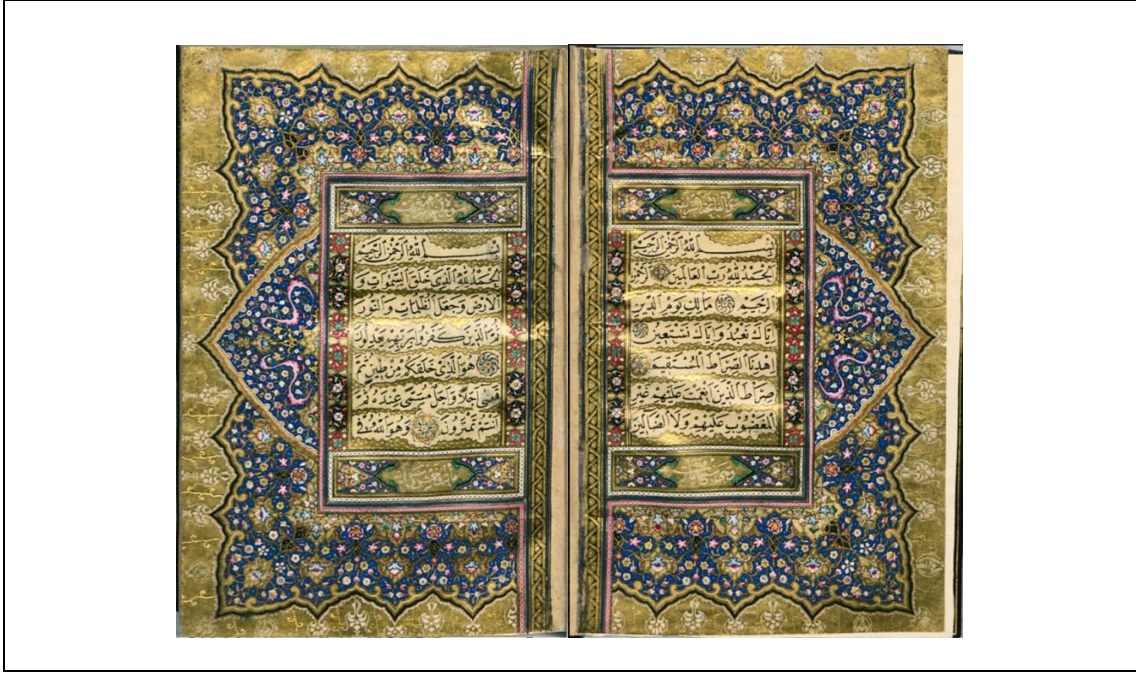 بسم الله الرحمن الرحيم
الحمد لله رب العالمين الرحمن
الرحيم مالك يوم الدين
اياك نعبد واياك نستعين
اهدنا الصراط المستقيم
صراط الذين انعمت عليهم غير
المغضوب عليهم ولا الضالين
بسم الله الرحمن الرحيم
الحمد لله الذى خلق السموات و
الارض وجعل الظلمات والنور
ثم الذين كفروا بربهم يعدلون
هو الذى خلقكم من طين ثم
قضى اجلا واجل مسمى عنده ثم
انتم تمترون وهو الله فى